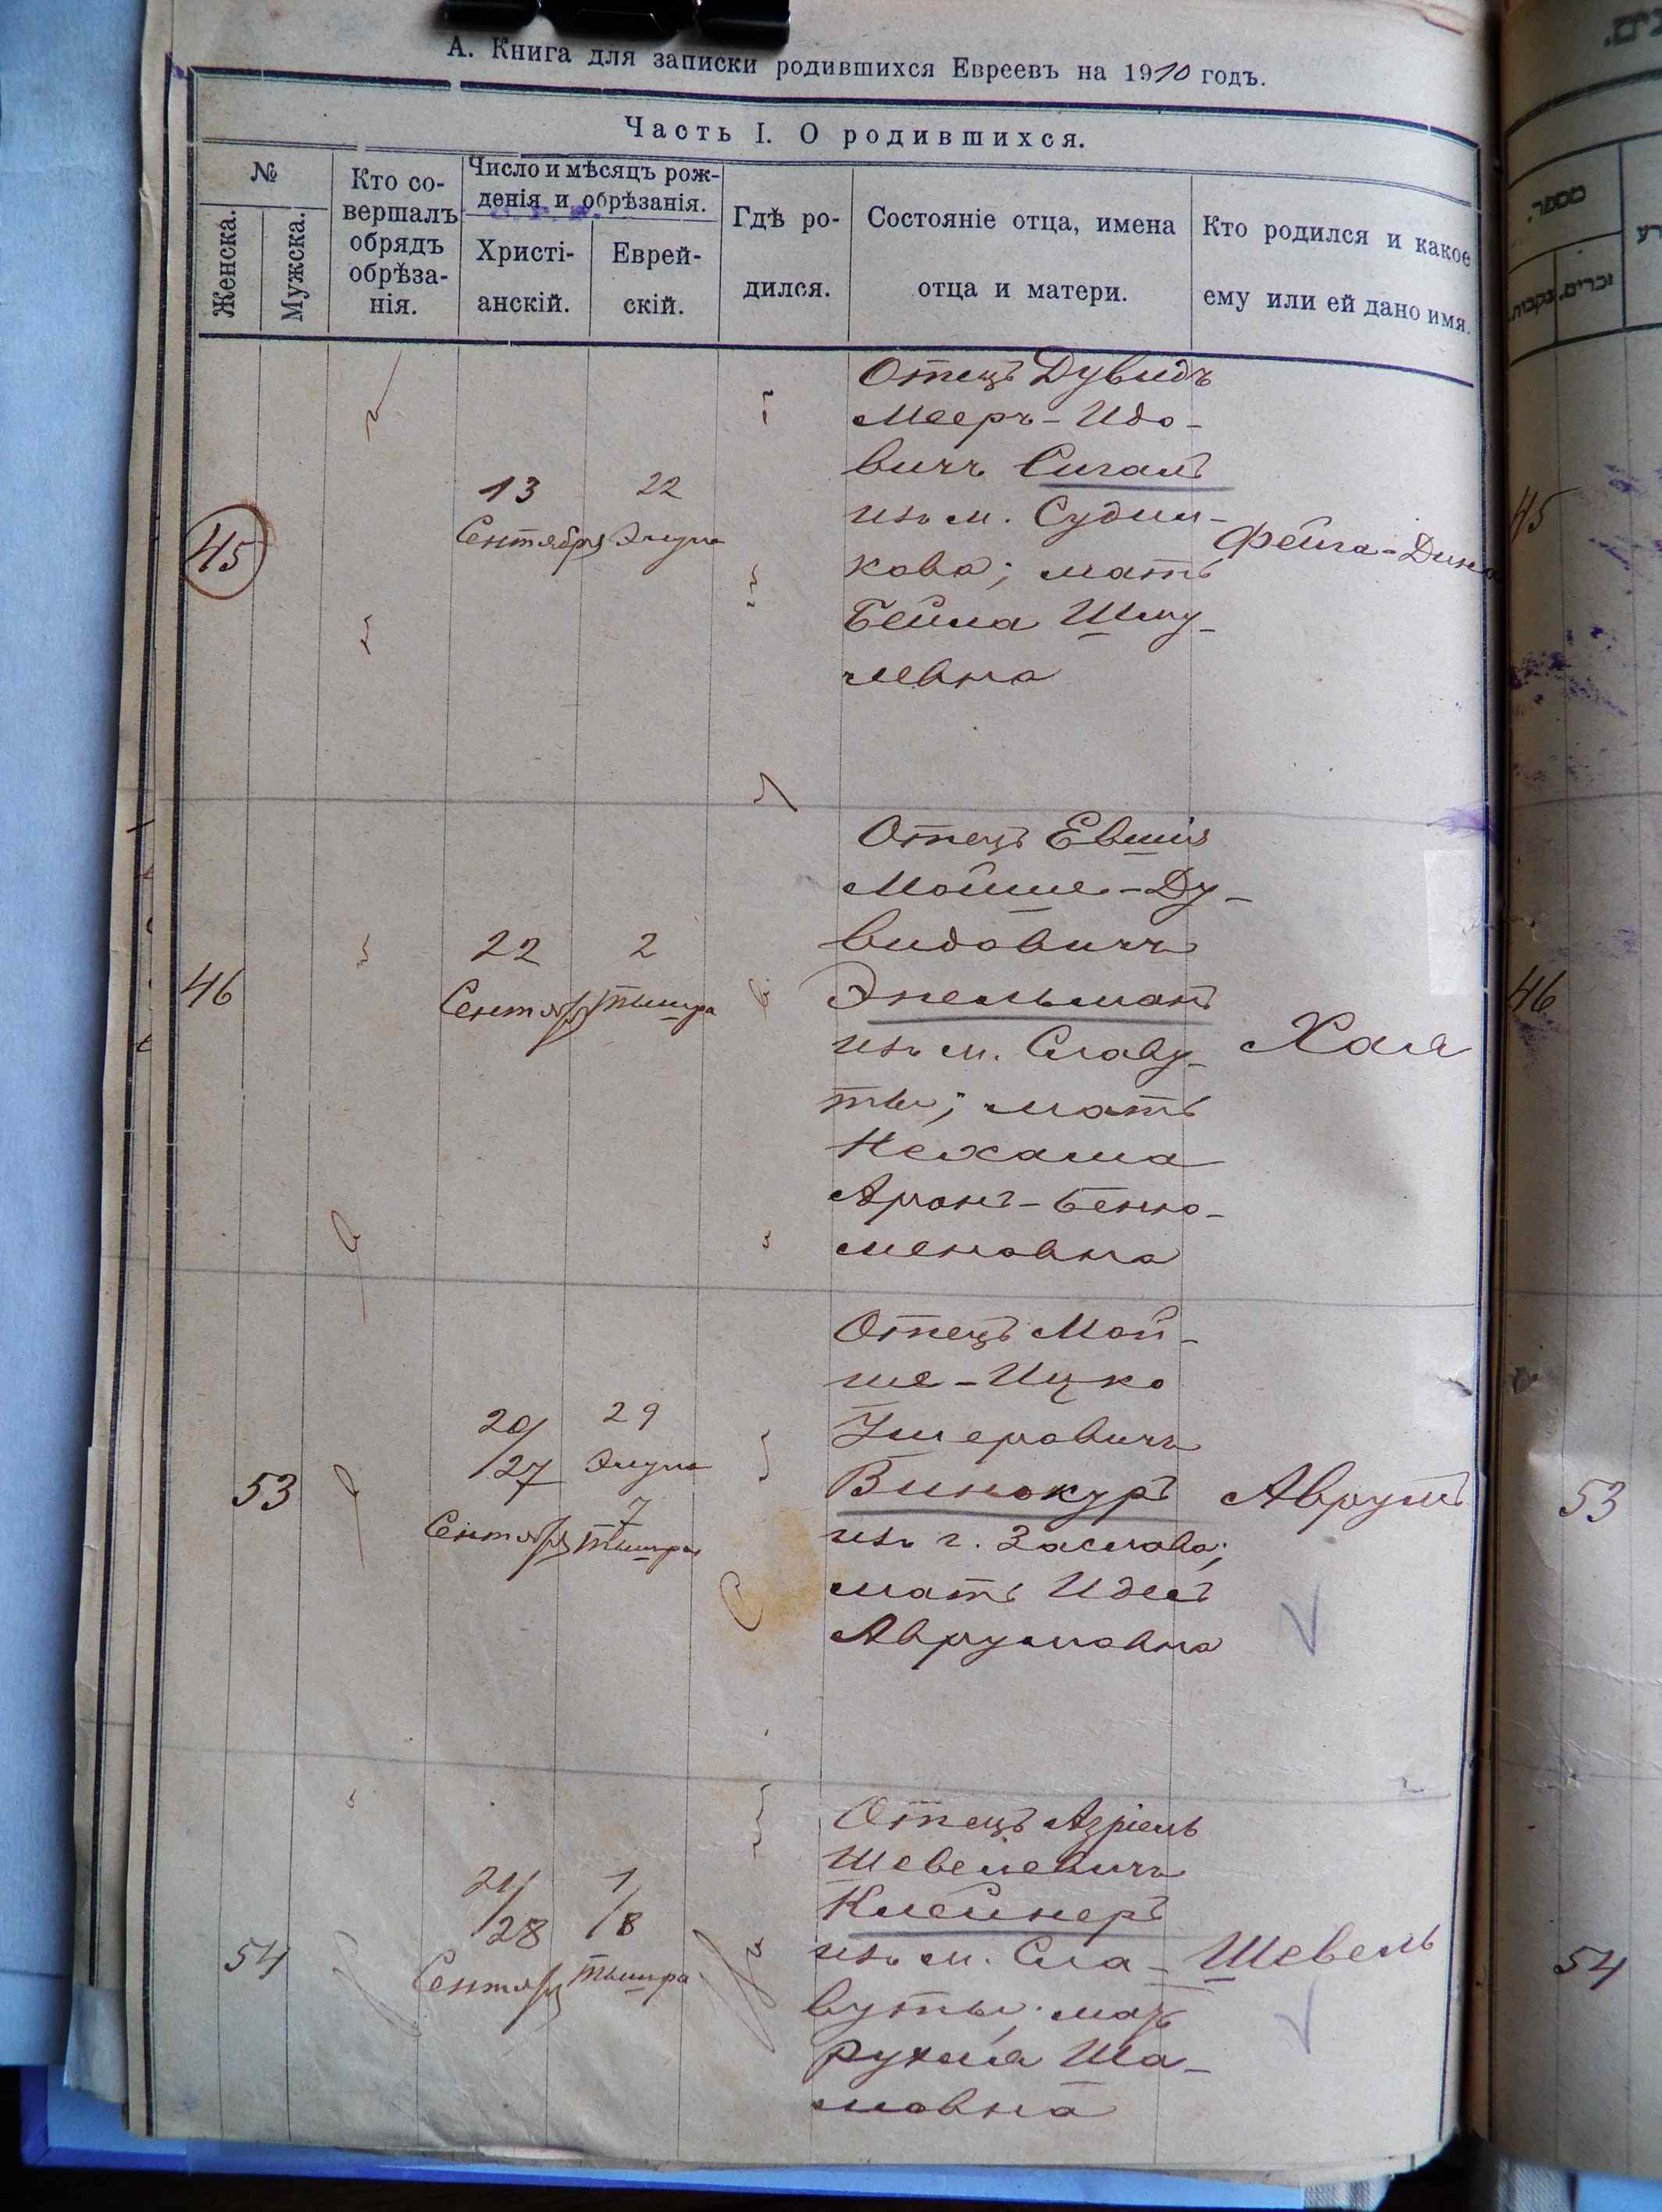 А. Книга для записки родившихся Евреевъ на 1910 годъ.
Часть I. О родившихся.
№
Женска.
Мужска.
Кто со-
вершалъ
обрядъ
обрѣза-
нія.
Число и мѣсяцъ рож-
денія и обрѣзанія.
Христі-
анскій.
Еврей-
скій.
Гдѣ ро-
дился.
Состояніе отца, имена
отца и матери.
Кто родился и какое
ему или ей дано имя.
45
13
Сентября
22
Элула
Отецъ Дувидъ
Мееръ-Идо-
вичъ Сигалъ
изъ м. Судил-
кова; мать
Бейла Шму-
левна
Фейга-Дина
46
22
Сентяб
2
Тышра
Отецъ Евшія
Мойше-Ду-
видовичъ
Эпельманъ
изъ м. Славу-
ты; мать
Нехама
Аронъ-Беню-
меновна
Хая
53
20/
/27
Сентяб
29
Элула
7
Тышра
Отецъ Мой-
ше-Ицко
Ушеровичъ
Винокуръ
изъ г. Заслава;
мать Идесъ
Аврумовна
Аврумъ
54
21/
/28
Сентяб
1/
/8
Тышра
Отецъ Азріель
Шевелевичъ
Клейнеръ
изъ м. Сла-
вуты; мать
Рухля Ша-
мовна
Шевель
45
46
53
54
מספר
זכרים. נקבות.